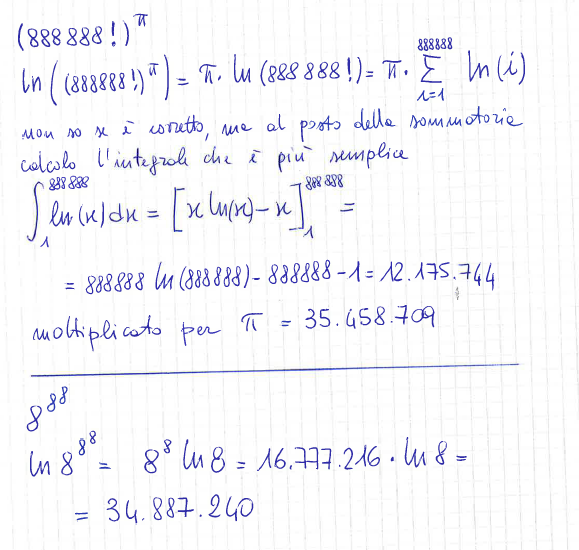 (888888!)^π
ln((888888!)^π) = π · ln(888888!) = π · ∑_{i=1}^{888888} ln(i)
non so se è corretto, ma al posto della sommatoria
calcolo l'integrale che è più semplice
∫_1^{888888} ln(x)dx = [x ln(x) - x]_1^{888888} =
= 888888 ln(888888) - 888888 - 1 = 12.175.744
moltiplicato per π = 35.458.709
8^{8^8}
ln 8^{8^8} = 8^8 ln 8 = 16.777.216 · ln 8 =
= 34.887.240